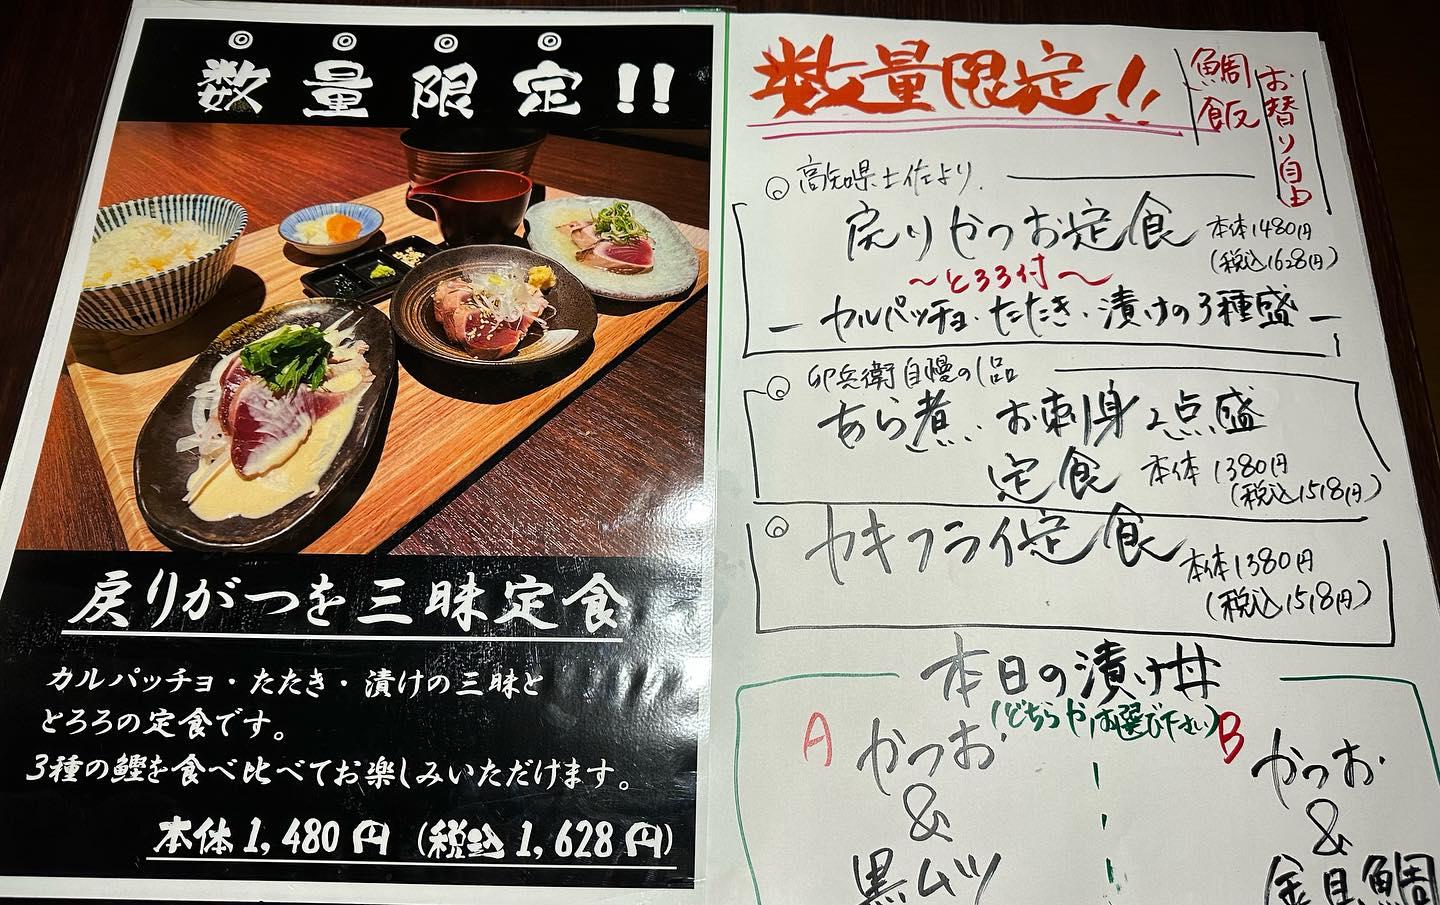 数量限定!!
戻りがつを三昧定食
カルパッチョ・たたき・漬けの三昧と
とろろの定食です。
3種の鰹を食べ比べてお楽しみいただけます。
本体1,480円（税込1,628円）
数量限定!!
鯛飯
お替り自由
高知県土佐より
戻りかつお定食
本体1480円
(税込1628円)
〜とろろ付〜
カルパッチョ・たたき・漬けの3種盛
卯兵衛自慢の1品
あら煮・お刺身2点盛
定食
本体1380円
(税込1518円)
カキフライ定食
本体1380円
(税込1518円)
本日の漬け丼
(どちらかお選び下さい)
A
かつお
&
黒ムツ
B
かつお
&
金目鯛